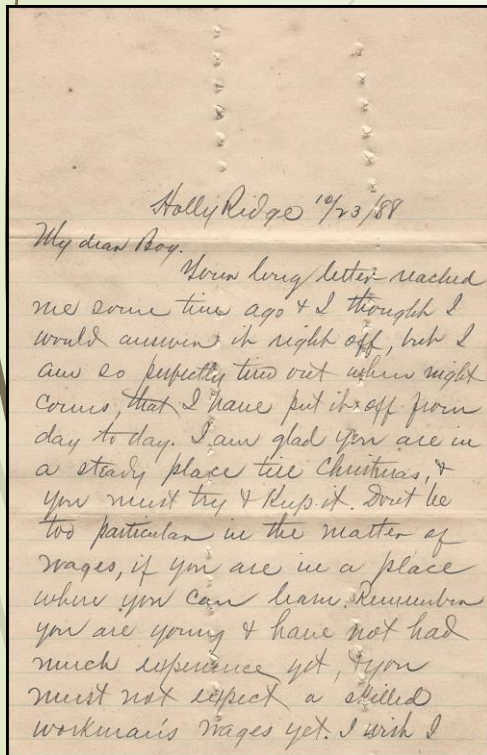 Holly Ridge 10/23/88
My dear Boy.
Your long letter reached
me some time ago & I thought I
would answer it right off, but I
am so perfectly tired out when night
comes, that I have put it off from
day to day. I am glad you are in
a steady place till Christmas, &
you must try & keep it. Dont be
too particular in the matter of
wages, if you are in a place
where you can learn. Remember
you are young & have not had
much experience yet, & you
must not expect a skilled
workman's wages yet. I wish I